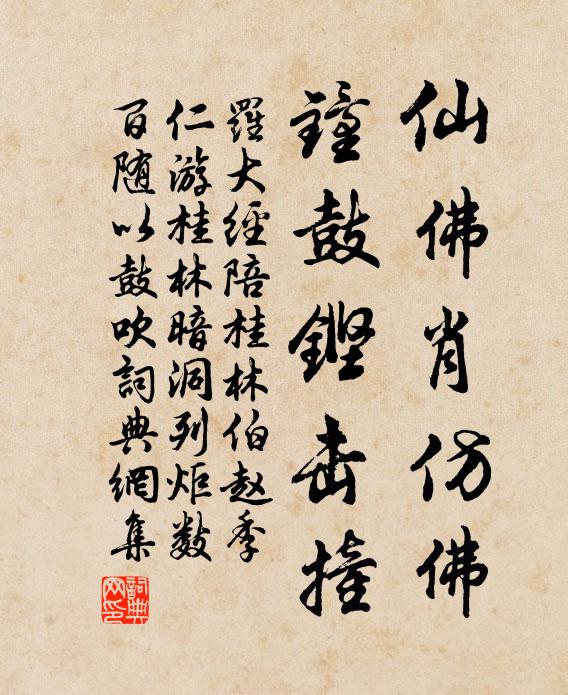 仙佛肖仿佛
鐘鼓鏗击撞
羅大經陪桂林伯赵季
仁游桂林暗洞列炬数
百随以鼓吹詞典網集
詞典网印